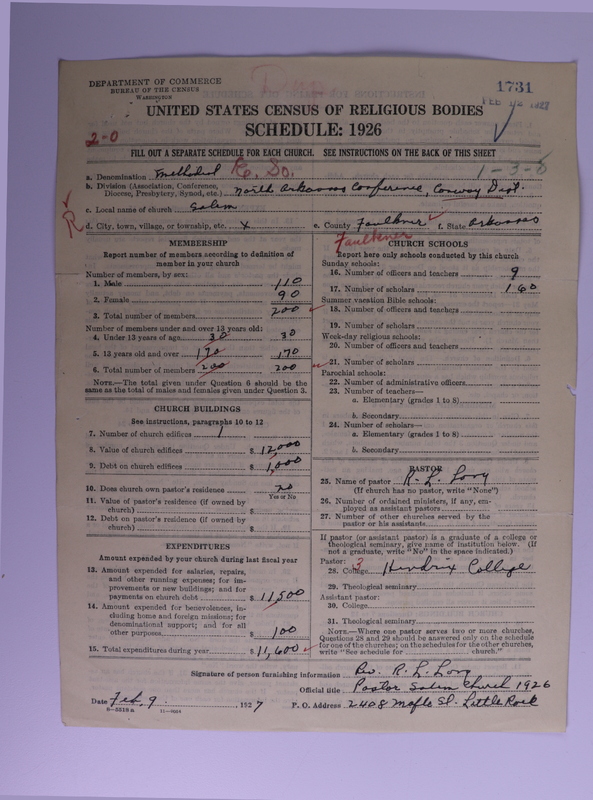 DEPARTMENT OF COMMERCE
BUREAU OF THE CENSUS
WASHINGTON
1731
UNITED STATES CENSUS OF RELIGIOUS BODIES
SCHEDULE: 1926
2-0
FILL OUT A SEPARATE SCHEDULE FOR EACH CHURCH. SEE INSTRUCTIONS ON THE BACK OF THIS SHEET
1-3-0
a. Denomination Methodist E. So.
b. Division (Association, Conference, Diocese, Presbytery, Synod, etc.) North Arkansas Conference, Conway Dist.
c. Local name of church Salem
R
d. City, town, village, or township, etc. X e. County Faulkner f. State Arkansas
Faulkner
MEMBERSHIP
Report number of members according to definition of
member in your church
Number of members, by sex:
1. Male 110
2. Female 90
3. Total number of members 200
Number of members under and over 13 years old:
4. Under 13 years of age 30 30
5. 13 years old and over 170 170
6. Total number of members 200 200
NOTE.—The total given under Question 6 should be the
same as the total of males and females given under Question 3.
CHURCH BUILDINGS
See instructions, paragraphs 10 to 12
7. Number of church edifices 1
8. Value of church edifices $ 12,000
9. Debt on church edifices $ 1,000
10. Does church own pastor's residence no
Yes or No
11. Value of pastor's residence (if owned by
church) $
12. Debt on pastor's residence (if owned by
church) $
EXPENDITURES
Amount expended by your church during last fiscal year
13. Amount expended for salaries, repairs,
and other running expenses; for im-
provements or new buildings; and for
payments on church debt $ 11,500
14. Amount expended for benevolences, in-
cluding home and foreign missions; for
denominational support; and for all
other purposes $ 100
15. Total expenditures during year $ 11,600
CHURCH SCHOOLS
Report here only schools conducted by this church
Sunday schools:
16. Number of officers and teachers 9
17. Number of scholars 160
Summer vacation Bible schools:
18. Number of officers and teachers
19. Number of scholars
Week-day religious schools:
20. Number of officers and teachers
21. Number of scholars
Parochial schools:
22. Number of administrative officers
23. Number of teachers—
a. Elementary (grades 1 to 8)
b. Secondary
24. Number of scholars—
a. Elementary (grades 1 to 8)
b. Secondary
PASTOR
25. Name of pastor R. L. Long
(If church has no pastor, write "None")
26. Number of ordained ministers, if any, em-
ployed as assistant pastors
27. Number of other churches served by the
pastor or his assistants
If pastor (or assistant pastor) is a graduate of a college or
theological seminary, give name of institution below. (If
not a graduate, write "No" in the space indicated.)
Pastor: 3
28. College Hendrix College
29. Theological seminary
Assistant pastor:
30. College
31. Theological seminary
NOTE.—Where one pastor serves two or more churches,
Questions 28 and 29 should be answered only on the schedule
for one of the churches; on the schedules for the other churches,
write "See schedule for church."
Signature of person furnishing information Rev. R. L. Long
Official title Pastor Salem Church 1926
Date Feb. 9, 1927 P. O. Address 2408 Maple St. Little Rock